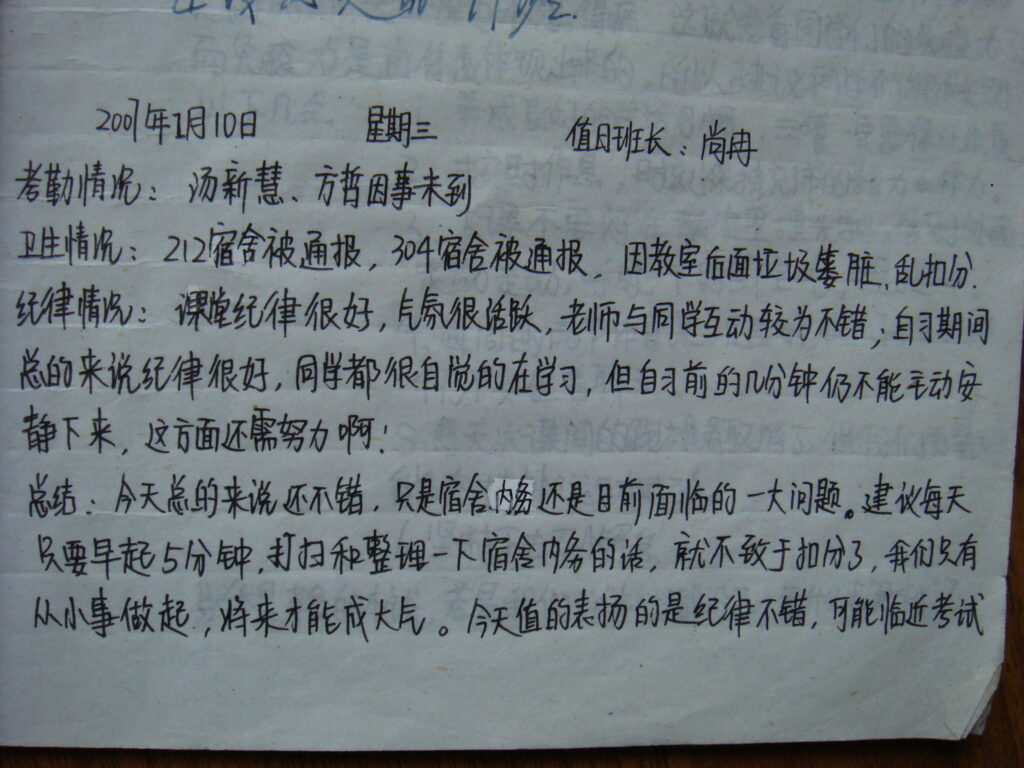 2007年1月10日 星期三 值日班长：尚冉
考勤情况：汤新慧、方哲因事未到
卫生情况：212宿舍被通报，304宿舍被通报，因教室后面垃圾篓脏、乱扣分.
纪律情况：课堂纪律很好，气氛很活跃，老师与同学互动较为不错；自习期间
总的来说纪律很好，同学都很自觉的在学习，但自习前的几分钟仍不能主动安
静下来，这方面还需努力啊！
总结：今天总的来说还不错，只是宿舍内务还是目前面临的一大问题。建议每天
只要早起5分钟，打扫和整理一下宿舍内务的话，就不致于扣分了，我们只有
从小事做起，将来才能成大气。今天值的表扬的是纪律不错，可能临近考试